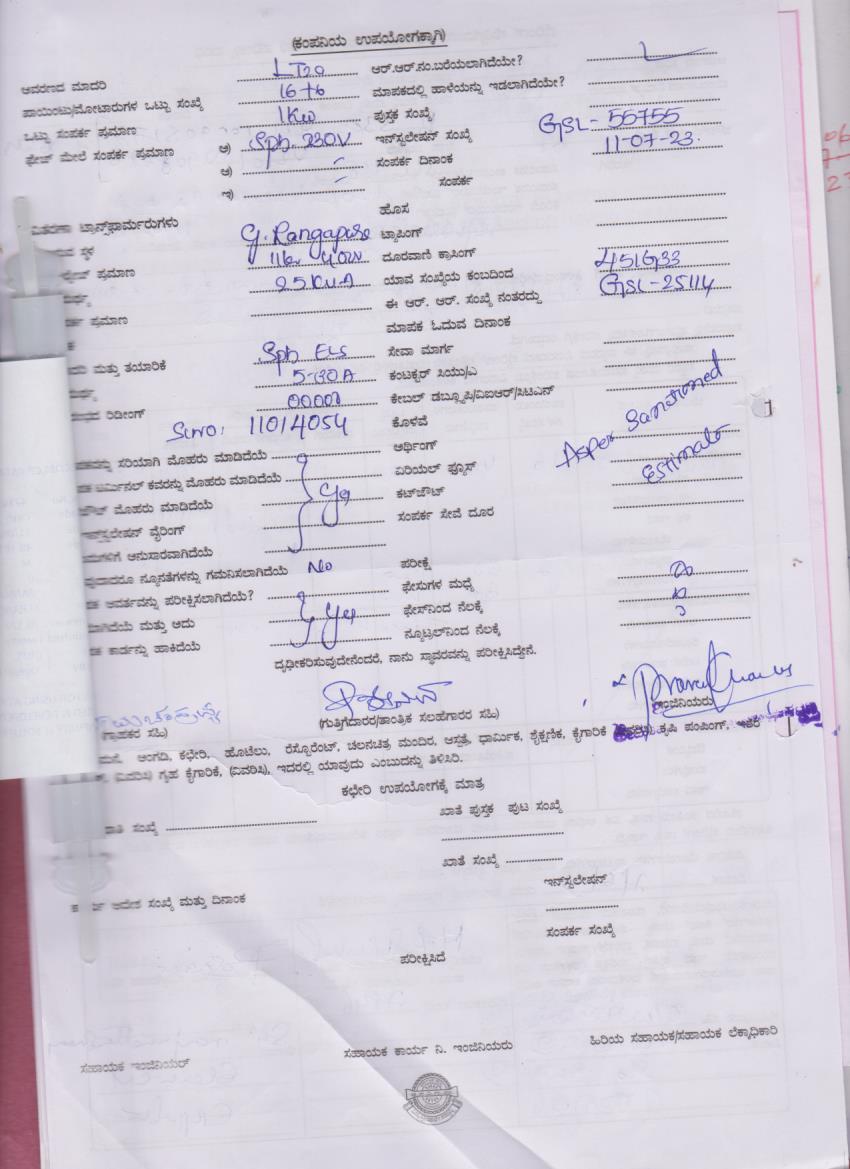 (ಕಂಪನಿಯ ಉಪಯೋಗಕ್ಕಾಗಿ)
ಆವರಣದ ಮಾದರಿ LT20 ಆರ್.ಆರ್.ನಂ.ಬರೆಯಲಾಗಿದೆಯೇ?
ಪಾಯಿಂಟು/ಮೋಟಾರುಗಳ ಒಟ್ಟು ಸಂಖ್ಯೆ 16+6 ಮಾಪಕದಲ್ಲಿ ಹಾಳೆಯನ್ನು ಇಡಲಾಗಿದೆಯೇ?
ಒಟ್ಟು ಸಂಪರ್ಕ ಪ್ರಮಾಣ 1KW ಪುಸ್ತಕ ಸಂಖ್ಯೆ
ಫೇಜ್ ಮೇಲೆ ಸಂಪರ್ಕ ಪ್ರಮಾಣ ಅ) Sph. 230V ಇನ್‌ಸ್ಟಲೇಷನ್ ಸಂಖ್ಯೆ GSL-55755
ಆ) ಸಂಪರ್ಕ ದಿನಾಂಕ 11-07-23.
ಇ) ಸಂಪರ್ಕ
ವಿತರಣಾ ಟ್ರಾನ್ಸ್‌ಫಾರ್ಮರುಗಳು ಹೊಸ
ಸ್ಥಳ G. Rangapura ಟ್ಯಾಪಿಂಗ್
ಪ್ರಮಾಣ ದೂರವಾಣಿ ಕ್ರಾಸಿಂಗ್
25KVA ಯಾವ ಸಂಖ್ಯೆಯ ಕಂಬದಿಂದ 451G33
ಪ್ರಮಾಣ ಈ ಆರ್. ಆರ್. ಸಂಖ್ಯೆ ನಂತರದ್ದು GSL-25114
ಮಾಪಕ ಓದುವ ದಿನಾಂಕ
ಮತ್ತು ತಯಾರಿಕೆ Sph ELS ಸೇವಾ ಮಾರ್ಗ
5-30A ಕಂಟಕ್ಟರ್ ಸಿಯು/ಎ
ರಿಡೀಂಗ್ ಕೇಬಲ್ ಡಬ್ಲ್ಯೂಪಿ/ವಿಐಆರ್/ಸಿಟಿಎನ್
Slno: 11014054 ಕೊಳವೆ
ಸರಿಯಾಗಿ ಮೊಹರು ಮಾಡಿದೆಯೆ ಅರ್ಥಿಂಗ್ As per Sanctioned
ಟರ್ಮಿನಲ್ ಕವರನ್ನು ಮೊಹರು ಮಾಡಿದೆಯೆ ಏರಿಯಲ್ ಫ್ಯೂಸ್ Estimate
ಮೊಹರು ಮಾಡಿದೆಯೆ Yes ಕಟ್‌ಔಟ್
ಇನ್‌ಸ್ಟಲೇಷನ್ ವೈರಿಂಗ್ ಸಂಪರ್ಕ ಸೇವೆ ದೂರ
ಅನುಸಾರವಾಗಿದೆಯೆ
ನ್ಯೂನತೆಗಳನ್ನು ಗಮನಿಸಲಾಗಿದೆಯೆ No ಪರೀಕ್ಷೆ
ಆವರ್ತವನ್ನು ಪರೀಕ್ಷಿಸಲಾಗಿದೆಯೆ? ಫೇಸುಗಳ ಮಧ್ಯೆ
ಮತ್ತು ಅದು Yes ಫೇಸ್‌ನಿಂದ ನೆಲಕ್ಕೆ
ಕಾರ್ಡನ್ನು ಹಾಕಿದೆಯೆ ನ್ಯೂಟ್ರಲ್‌ನಿಂದ ನೆಲಕ್ಕೆ
ದೃಢೀಕರಿಸುವುದೇನೆಂದರೆ, ನಾನು ಸ್ಥಾವರವನ್ನು ಪರೀಕ್ಷಿಸಿದ್ದೇನೆ.
(ಗ್ರಾಹಕರ ಸಹಿ) (ಗುತ್ತಿಗೆದಾರರ/ತಾಂತ್ರಿಕ ಸಲಹೆಗಾರರ ಸಹಿ) ಇಂಜಿನಿಯರು
ಮನೆ, ಅಂಗಡಿ, ಕಛೇರಿ, ಹೋಟೆಲು, ರೆಸ್ಟೋರೆಂಟ್, ಚಲನಚಿತ್ರ ಮಂದಿರ, ಆಸ್ಪತ್ರೆ, ಧಾರ್ಮಿಕ, ಶೈಕ್ಷಣಿಕ, ಕೈಗಾರಿಕೆ ಕೃಷಿ ಪಂಪಿಂಗ್, ಇತರೆ
(ವಿವರಿಸಿ) ಗೃಹ ಕೈಗಾರಿಕೆ, (ವಿವರಿಸಿ), ಇದರಲ್ಲಿ ಯಾವುದು ಎಂಬುದನ್ನು ತಿಳಿಸಿರಿ.
ಕಛೇರಿ ಉಪಯೋಗಕ್ಕೆ ಮಾತ್ರ
ಸಂಖ್ಯೆ ಖಾತೆ ಪುಸ್ತಕ ಪುಟ ಸಂಖ್ಯೆ
ಖಾತೆ ಸಂಖ್ಯೆ
ಇನ್‌ಸ್ಟಲೇಷನ್
ಆದೇಶ ಸಂಖ್ಯೆ ಮತ್ತು ದಿನಾಂಕ
ಸಂಪರ್ಕ ಸಂಖ್ಯೆ
ಪರೀಕ್ಷಿಸಿದೆ
ಸಹಾಯಕ ಇಂಜಿನಿಯರ್ ಸಹಾಯಕ ಕಾರ್ಯ ನಿ. ಇಂಜಿನಿಯರು ಹಿರಿಯ ಸಹಾಯಕ/ಸಹಾಯಕ ಲೆಕ್ಕಾಧಿಕಾರಿ